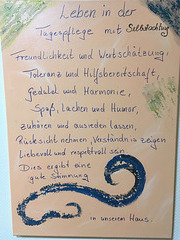 Leben in der
Tagespflege mit Selbstachtung
Freundlichkeit und Wertschätzung,
Toleranz und Hilfsbereitschaft,
Geduld und Harmonie,
Spaß, Lachen und Humor,
zuhören und ausreden lassen,
Rücksicht nehmen, Verständnis zeigen
Liebevoll und respektvoll sein
Dies ergibt eine
gute Stimmung
in unserem Haus.